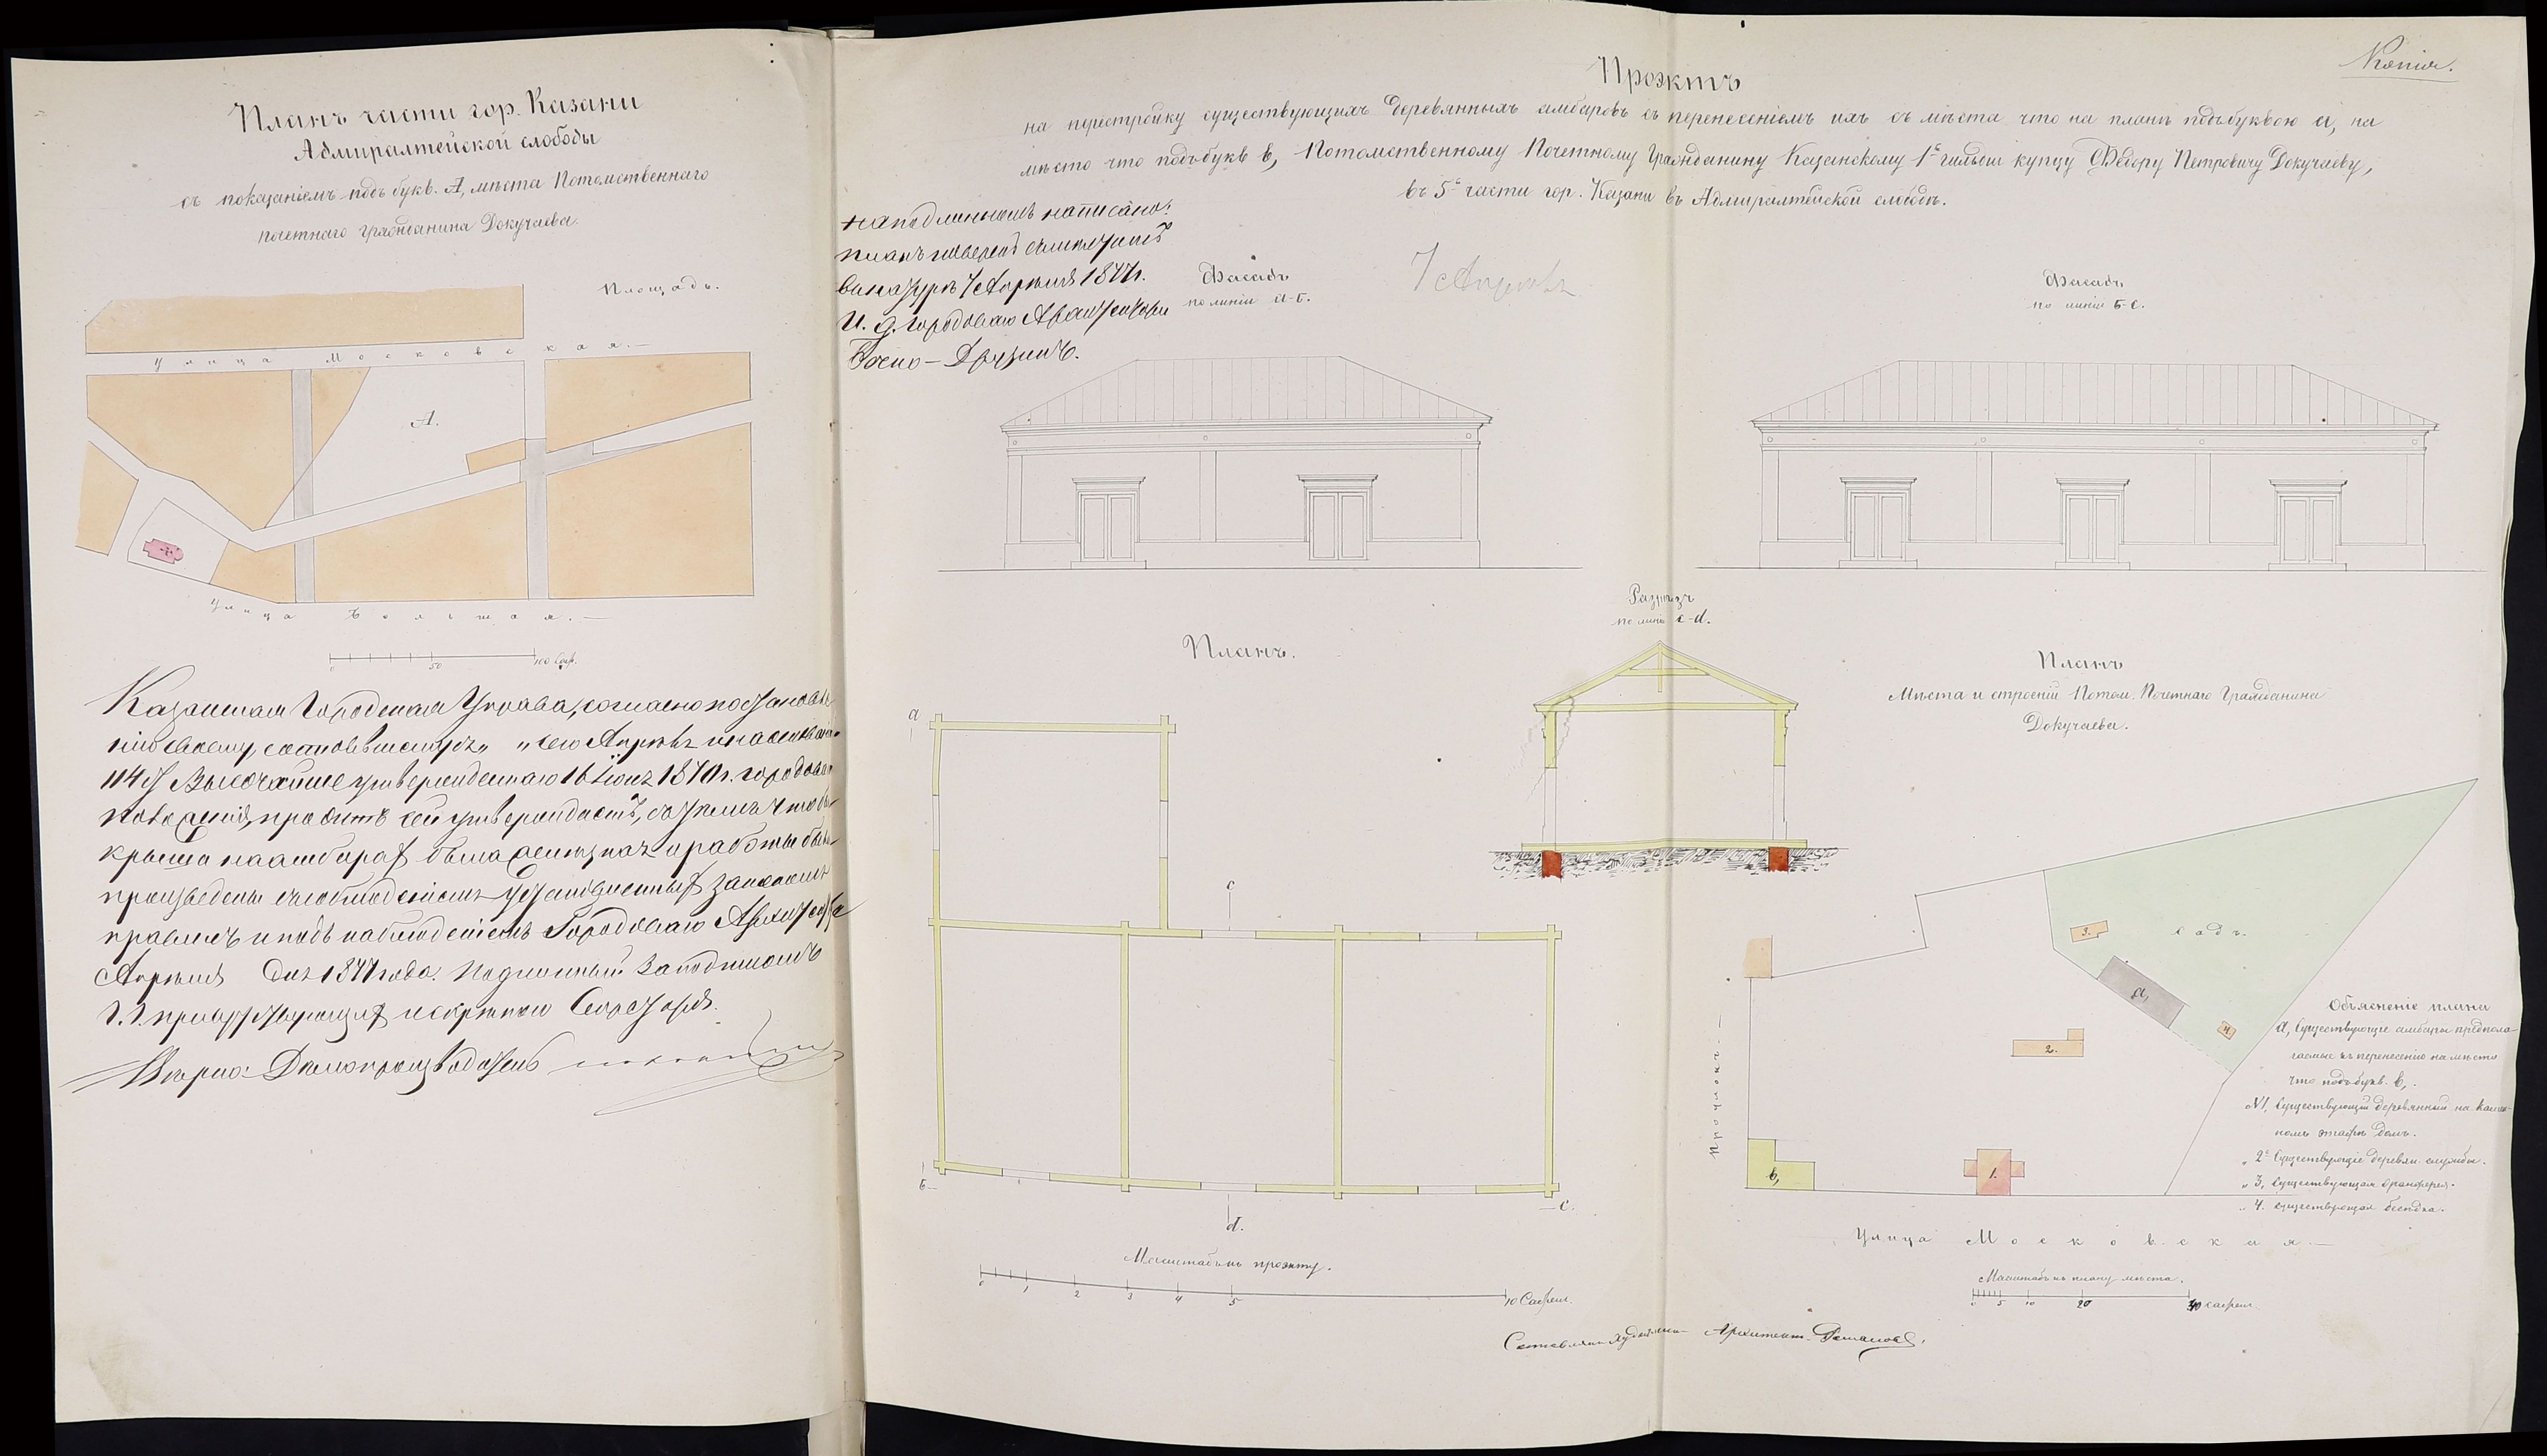 Планъ части гор. Казани
Адмиралтейской слободы
съ показанiемъ подъ букв. А, мѣста Потомственнаго
почетнаго гражданина Докучаева.
Площадь.
Улица Московская.
А.
Улица Большая.
0 50 100 Саж.
Казанская Городская Управа, согласно постановле
нiю своему, состоявшемуся „ „ сего Апрѣля и на основанiи
114 § Высочайше утвержденнаго 16 Iюня 1870 г. городоваго
положенiя, проэктъ сей утверждаетъ, съ тѣмъ чтобы
крыша на амбарах была желѣзная и работы были
произведены съ соблюденiемъ установленных закономъ
правилъ и подъ наблюденiемъ Городоваго Архитектора
Апрѣля Дня 1877 года. Подлинный за подписомъ
г.г. присутствующих и скрѣпою Секретаря.
Вѣрно: Дѣлопроизводитель
Копiя.
Проэктъ
на перестройку существующихъ деревянныхъ амбаровъ съ перенесенiемъ ихъ съ мѣста что на планѣ подъ буквою а, на
мѣсто что подъ букв. в, Потомственному Почетному Гражданину Казанскому 1й гильдiи купцу Ѳедору Петровичу Докучаеву,
въ 5й части гор. Казани въ Адмиралтейской слободѣ.
На подлинномъ написано:
планъ повѣренъ съ
въ натурѣ 7 Апрѣля 1877 г.
И. д. Городоваго Архитектора
7 Апрѣля
Фасадъ
по линiи а-б.
Фасадъ
по линiи б-с.
Разрѣзъ
по линiи c-d.
Планъ.
а
c
б
d.
с.
Масштабъ къ проэкту.
0 1 2 3 4 5 10 Сажен.
Планъ
Мѣста и строенiй Потом. Почетнаго Гражданина
Докучаева.
садъ.
3.
а,
4.
2.
Проулокъ
в,
1.
Объясненiе плана
а, Существующiе амбары предпола-
гаемые къ перенесенiю на мѣсто
что подъ букв. в,
№1, Существующiй деревянный на камен-
номъ этажѣ домъ.
„ 2е Существующiе деревян. службы.
„ 3, Существующая оранжерея.
„ 4. Существующая бесѣдка.
Улица Московская.
Масштабъ къ плану мѣста.
0 5 10 20 40 сажен.
Составлялъ Архитект.